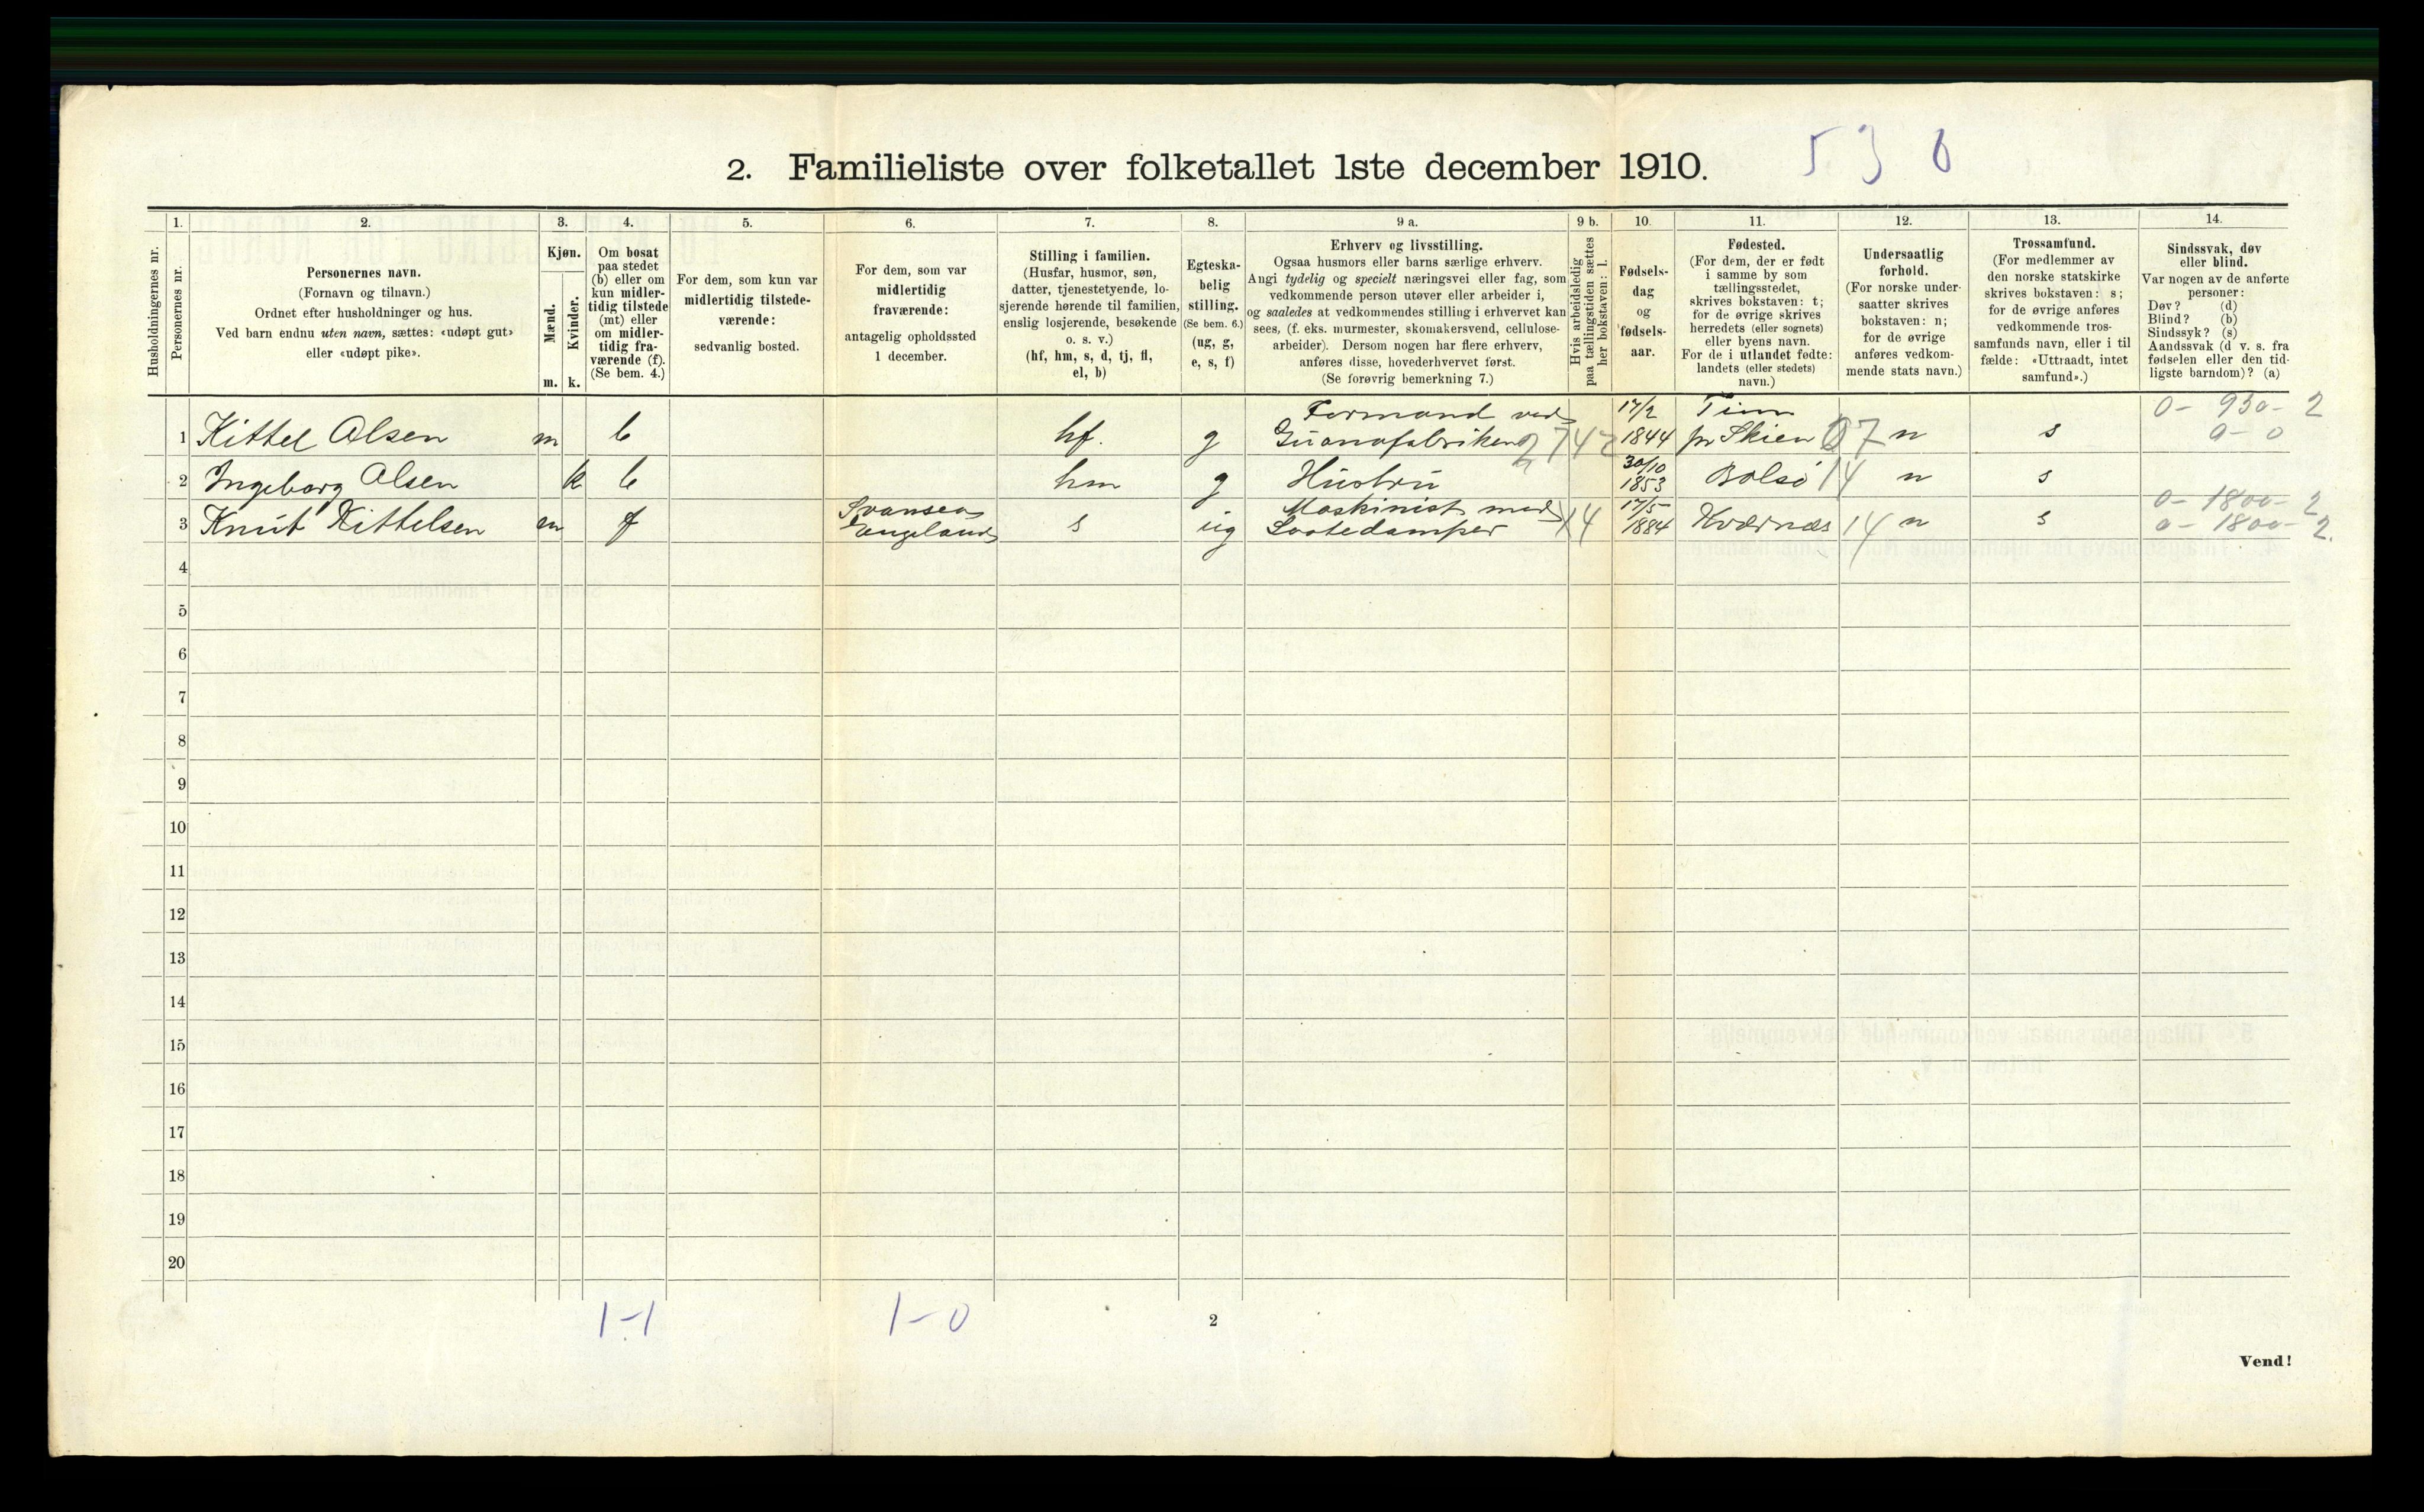 2. Familieliste over folketallet 1ste december 1910.
5 3 0
Husholdningernes nr.
1.
Personernes nr.
2.
Personernes navn.
(Fornavn og tilnavn.)
Ordnet efter husholdninger og hus.
Ved barn endnu uten navn, sættes: «udøpt gut»
eller «udøpt pike».
3.
Kjøn.
Mænd.
Kvinder.
m. k.
4.
Om bosat
paa stedet
(b) eller om
kun midler-
tidig tilstede
(mt) eller
om midler-
tidig fra-
værende (f).
(Se bem. 4.)
5.
For dem, som kun var
midlertidig tilstede-
værende:
sedvanlig bosted.
6.
For dem, som var
midlertidig
fraværende:
antagelig opholdssted
1 december.
7.
Stilling i familien.
(Husfar, husmor, søn,
datter, tjenestetyende, lo-
sjerende hørende til familien,
enslig losjerende, besøkende
o. s. v.)
(hf, hm, s, d, tj, fl,
el, b)
8.
Egteska-
belig
stilling.
(Se bem. 6.)
(ug, g,
e, s, f)
9 a.
Erhverv og livsstilling.
Ogsaa husmors eller barns særlige erhverv.
Angi tydelig og specielt næringsvei eller fag, som
vedkommende person utøver eller arbeider i,
og saaledes at vedkommendes stilling i erhvervet kan
sees, (f. eks. murmester, skomakersvend, cellulose-
arbeider). Dersom nogen har flere erhverv,
anføres disse, hovederhvervet først.
(Se forøvrig bemerkning 7.)
9 b.
Hvis arbeidsledig
paa tællingstiden sættes
her bokstaven: l.
10.
Fødsels-
dag
og
fødsels-
aar.
11.
Fødested.
(For dem, der er født
i samme by som
tællingsstedet,
skrives bokstaven: t;
for de øvrige skrives
herredets (eller sognets)
eller byens navn.
For de i utlandet fødte:
landets (eller stedets)
navn.)
12.
Undersaatlig
forhold.
(For norske under-
saatter skrives
bokstaven: n;
for de øvrige
anføres vedkom-
mende stats navn.)
13.
Trossamfund.
(For medlemmer av
den norske statskirke
skrives bokstaven: s;
for de øvrige anføres
vedkommende tros-
samfunds navn, eller i til
fælde: «Uttraadt, intet
samfund».)
14.
Sindssvak, døv
eller blind.
Var nogen av de anførte
personer:
Døv? (d)
Blind? (b)
Sindssyk? (s)
Aandssvak (d v. s. fra
fødselen eller den tid-
ligste barndom)? (a)
Formand ved 17/2 Tinn 0- 930- 2
1 Kittel Olsen m b hf. g Guanofabriken 2742 1844 pr Skien 07 n s 0- 0
30/10
2 Ingeborg Olsen k b hm g Hustru 1853 Bolsö 14 n s
Svansea Maskinist med 17/5 0- 1800- 2
3 Knut Kittelsen m f England s ug Lastedamper X4 1884 Kvernæs 14 n s 0- 1800- 2.
4
5
6
7
8
9
10
11
12
13
14
15
16
17
18
19
20
1-1 1-0
2
Vend!